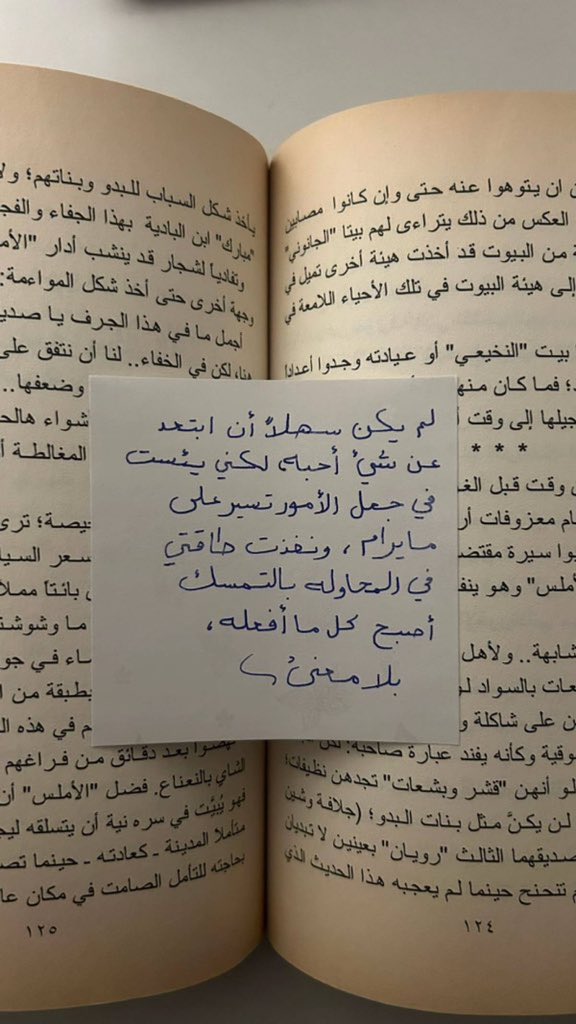 ان يتوهوا عنه حتى وإن كانوا مصابين
العكس من ذلك يتراءى لهم بيتا "الجانوني"
من البيوت قد أخذت هيئة أخرى تميل في
إلى هيئة البيوت في تلك الأحياء اللامعة في
بيت "النخيعي" أو عيادته وجدوا أعدادا
فما كان
إلى وقت
* * *
وقت قبل
معزوفات
سيرة
وهو
ولأهل
بالسواد
على شاكلة
وكأنه يفند عبارة صاحبه:
أنهن "قشر وبشعات" تجدهن نظيفات؛
لن يكنَّ مثل بنات البدو؛ (جلافة وشين
صديقهما الثالث "رويان" بعينين لا تبديان
تتحنح حينما لم يعجبه هذا الحديث الذي
١٢٤
لم يكن سهلاً أن ابتعد
عن شيءٍ أحبه، لكني يئست
في جعل الأمور تسير على
مايرام، ونفذت طاقتي
في المحاوله بالتمسك
أصبح كل ما أفعله،
بلا معنىً
يأخذ شكل السباب للبدو وبناتهم؛
"مبارك" ابن البادية بهذا الجفاء
وتفادياً لشجار قد ينشب أدار
وجهة أخرى حتى أخذ شكل المواءمة:
أجمل ما في هذا الجرف يا
هنا، لكن في الخفاء.. لنا أن نتفق على
وضعفها..
شواء
المغالطة
ترى
ما
في
من
في هذه
بعد دقائق من فراغهم
الشاي بالنعناع. فضل "الأملس" أن
فهو يُبيَّت في سره نية أن يتسلقه
متأملاً المدينة ـ كعادته ـ حينما
بحاجته للتأمل الصامت في مكان
١٢٥